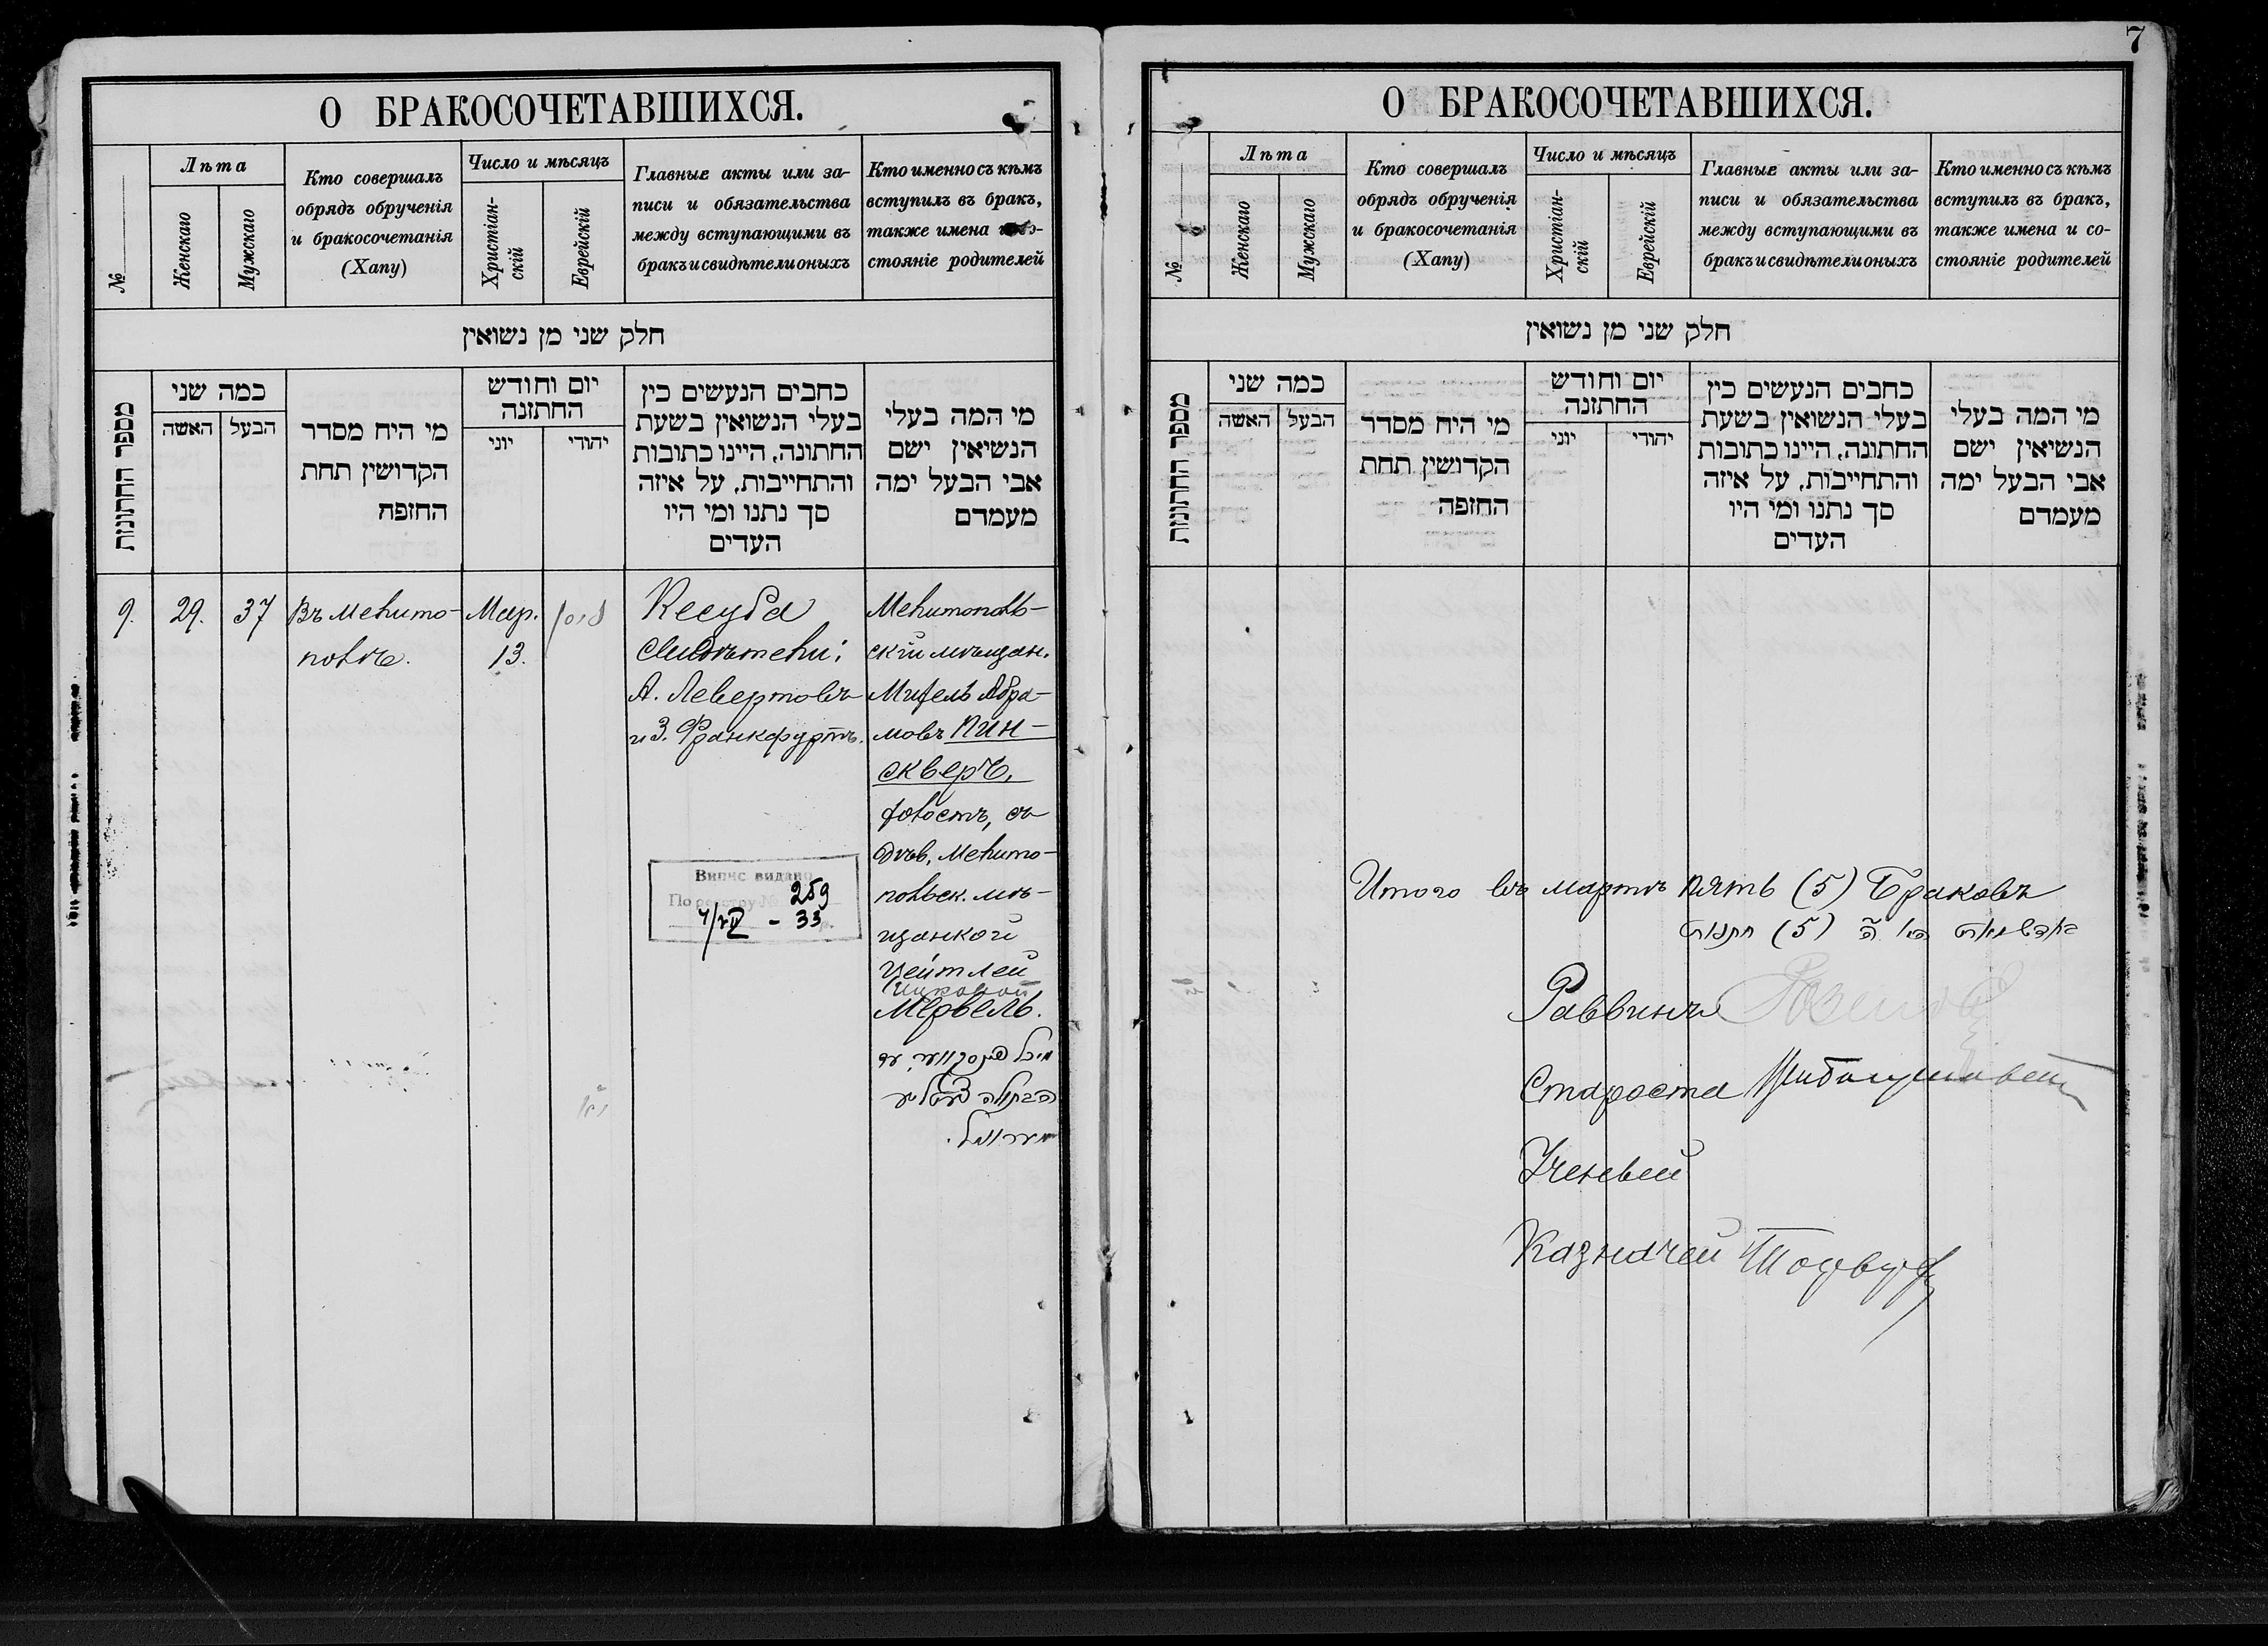 7
О БРАКОСОЧЕТАВШИХСЯ.
№
Лѣта
Женскаго
Мужскаго
Кто совершалъ
обрядъ обрученія
и бракосочетанія
(Хапу)
Число и мѣсяцъ
Христіан-
скій
Еврейскій
Главные акты или за-
писи и обязательства
между вступающими въ
бракъ и свидѣтели оныхъ
Кто именно съ кѣмъ
вступилъ въ бракъ,
также имена
стояніе родителей
חלק שני מן נשואין
מספר החתונות
כמה שני
האשה
הבעל
מי היח מסדר
הקדושין תחת
החופה
יום וחודש
החתונה
יוני
יהודי
כחבים הנעשים בין
בעלי הנשואין בשעת
החתונה, היינו כתובות
והתחייבות, על איזה
סך נתנו ומי היו
העדים
מי המה בעלי
הנשיאין ישם
אבי הבעל ימה
מעמדם
9.
29.
37
Въ Мелито-
полѣ.
Мар.
13.
Кесуба
Свидѣтели:
А. Левертовъ
и З. Франкфуртъ.
Мелитополь-
скій мѣщан.
Михель Абра-
мовъ Пин-
скверъ,
холостъ, съ
дѣв. Мелито-
польск. мѣ-
щанкой
Цейтлей
Ицковой
Мервель.
מיכל פינסקווער, עם
הבתולה צייטליע
מערוועל.
Випис видано
По реєстру № 259
33
О БРАКОСОЧЕТАВШИХСЯ.
№
Лѣта
Женскаго
Мужскаго
Кто совершалъ
обрядъ обрученія
и бракосочетанія
(Хапу)
Число и мѣсяцъ
Христіан-
скій
Еврейскій
Главные акты или за-
писи и обязательства
между вступающими въ
бракъ и свидѣтели оныхъ
Кто именно съ кѣмъ
вступилъ въ бракъ,
также имена и со-
стояніе родителей
חלק שני מן נשואין
מספר החתונות
כמה שני
האשה
הבעל
מי היח מסדר
הקדושין תחת
החופה
יום וחודש
החתונה
יוני
יהודי
כחבים הנעשים בין
בעלי הנשואין בשעת
החתונה, היינו כתובות
והתחייבות, על איזה
סך נתנו ומי היו
העדים
מי המה בעלי
הנשיאין ישם
אבי הבעל ימה
מעמדם
Итого въ мартѣ пять (5) браковъ
(5) חתנות
Раввинъ
Староста
Ученый
Казначей